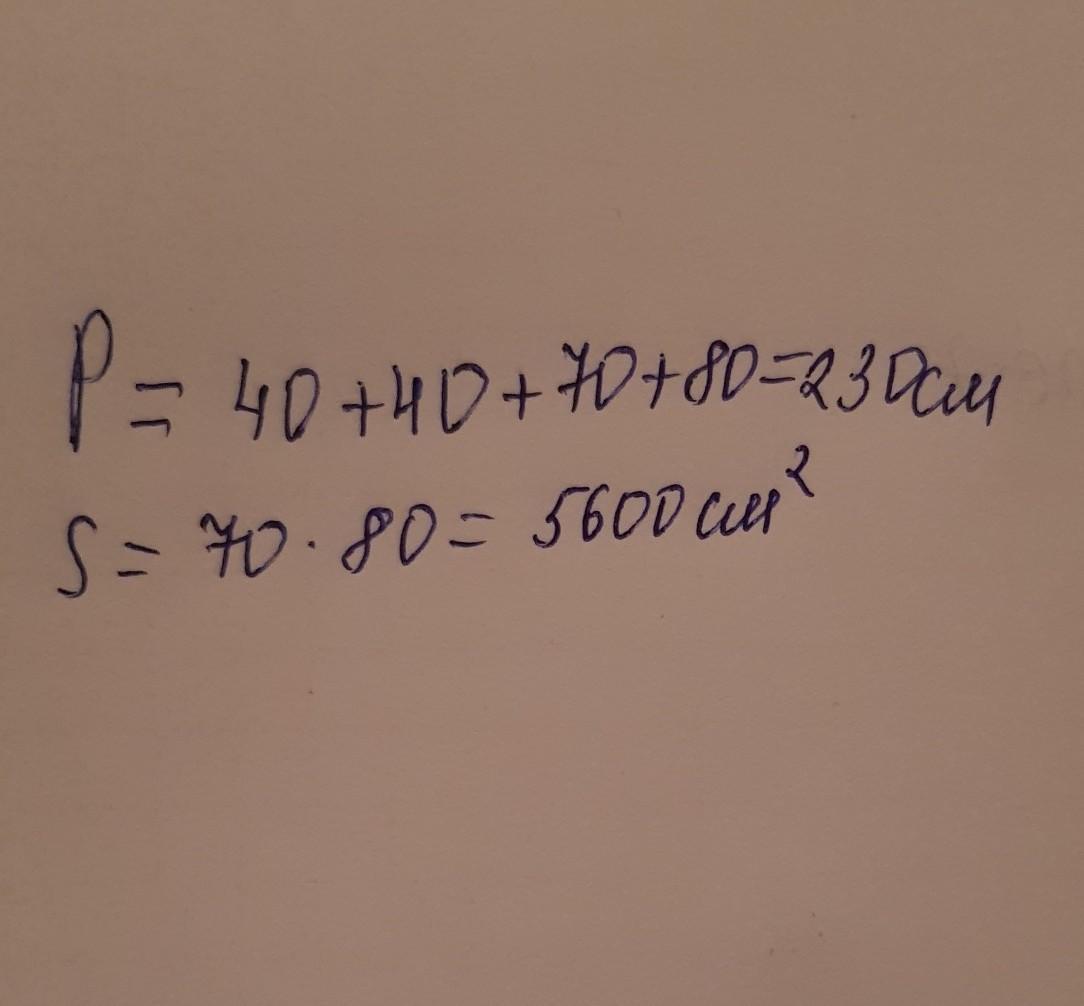 P = 40+40+70+80=230см
S = 70·80= 5600см²